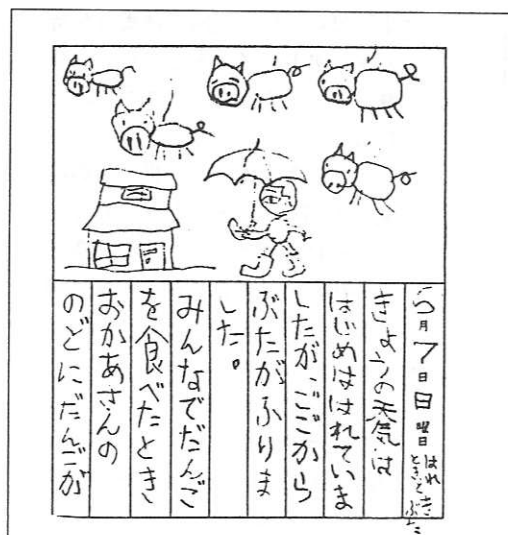 6月7日日曜日 はれときどきぶた
きょうの天気は
はじめははれていま
したが、ごごから
ぶたがふりま
した。
みんなでだんご
を食べたとき
おかあさんの
のどにだんごが